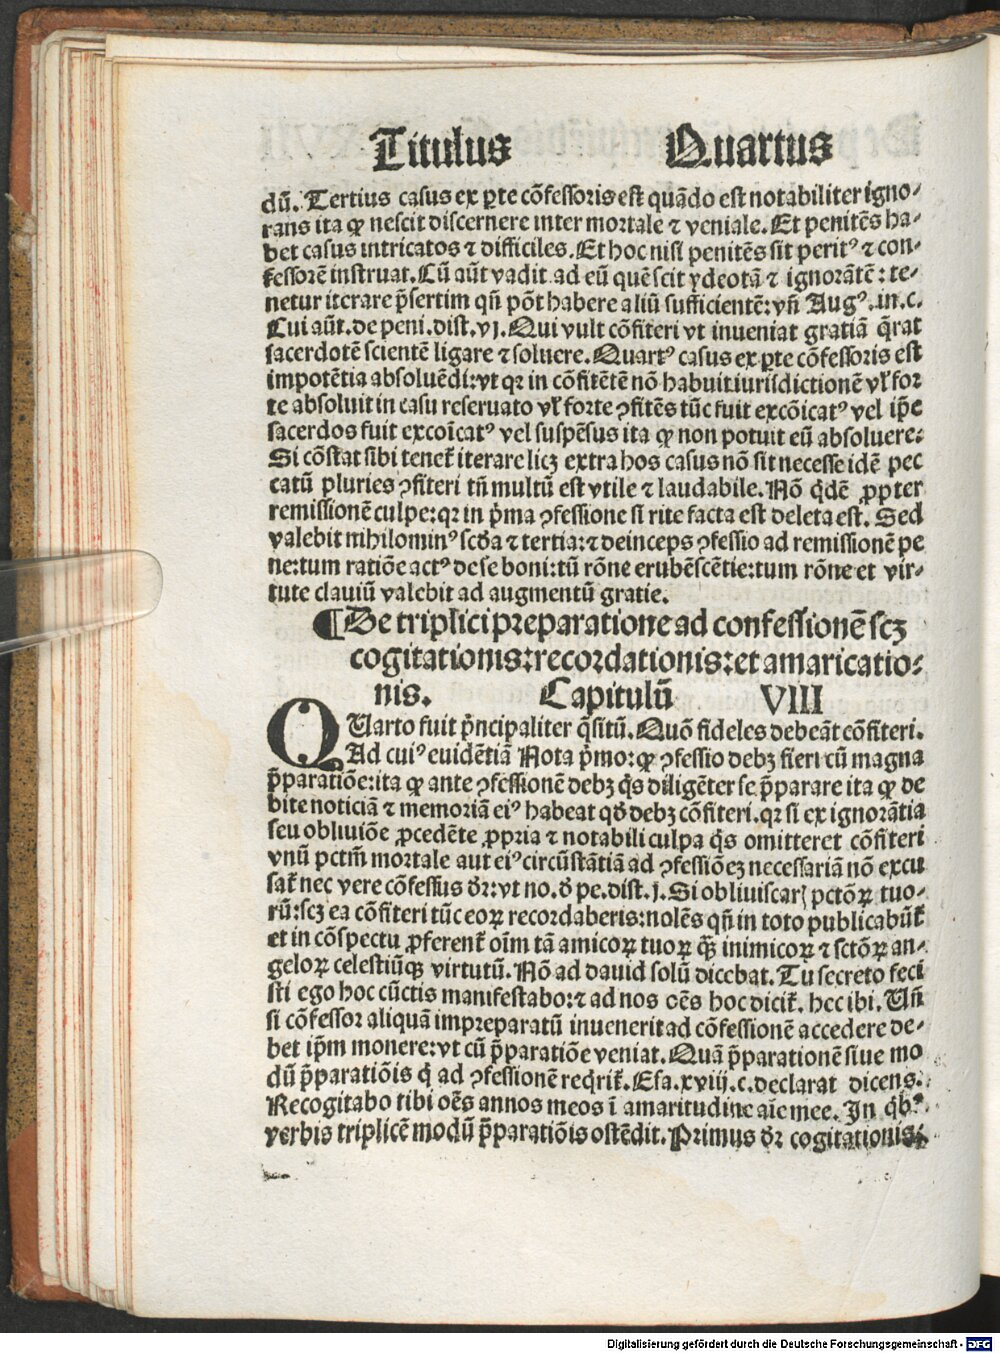 Titulus Quartus
dū. Tertius casus ex ꝑte cōfessoris est quādo est notabiliter igno-
rans ita ꝙ nescit discernere inter mortale ⁊ veniale. Et penitēs ha-
bet casus intricatos ⁊ difficiles. Et hoc nisi penitēs sit peritꝰ ⁊ con-
fessorē instruat. Cū aūt vadit ad eū quē scit ydeotā ⁊ ignorātē: te-
netur iterare p̄sertim qn̄ pōt habere aliū sufficientē: vn̄ Augꝰ. in. c.
Cui aūt. de peni. dist. vj. Qui vult cōfiteri vt inueniat gratiā q̄rat
sacerdotē scientē ligare ⁊ soluere. Quartꝰ casus ex ꝑte cōfessoris est
impotētia absoluēdi: vt qꝛ in cōfitētē nō habuit iurisdictionē vl̓ for
te absoluit in casu reseruato vl̓ forte ꝯfitēs tūc fuit excōicatꝰ vel ip̄e
sacerdos fuit excoīcatꝰ vel suspēsus ita ꝙ non potuit eū absoluere:
Si cōstat sibi tenet̄ iterare licꝫ extra hos casus nō sit necesse idē pec
catū pluries ꝯfiteri tn̄ multū est vtile ⁊ laudabile. Nō q̄dē ꝓpter
remissionē culpe: qꝛ in p̄ma ꝯfessione si rite facta est deleta est. Sed
valebit nihilominꝰ scd̄a ⁊ tertia: ⁊ deinceps ꝯfessio ad remissionē pe
ne: tum ratiōe actꝰ de se boni: tū rōne erubēscētie: tum rōne et vir-
tute clauiū valebit ad augmentū gratie.
¶ De triplici preparatione ad confessionē scꝫ
cogitationis: recordationis: et amaricatio-
nis. Capitulū VIII
QUarto fuit p̄ncipaliter q̄situ̅. Quō fideles debeāt cōfiteri.
Ad cuiꝰ euidētiā Nota p̄mo: ꝙ ꝯfessio debꝫ fieri cū magna
p̄paratiōe: ita ꝙ ante ꝯfessionē debꝫ q̄s diligēter se p̄parare ita ꝙ de
bite noticiā ⁊ memoriā eiꝰ habeat qd̄ debꝫ cōfiteri. qꝛ si ex ignorātia
seu obliuiōe ꝓcedēte ꝓpria ⁊ notabili culpa q̄s omitteret cōfiteri
vnū pctm̄ mortale aut eiꝰ circūstātiā ad ꝯfessiōeꝫ necessariā nō excu
sat̄ nec vere cōfessus dr̄: vt no. d̄ pe. dist. j. Si obliuiscaris pctōꝝ tuo-
rū: scꝫ ea cōfiteri tūc eoꝝ recordaberis: nolēs qn̄ in toto publicabūt̄
et in cōspectu ꝓferent̄ oīm tā amicoꝝ tuoꝝ q̄ꝫ inimicoꝝ ⁊ sctōꝝ an-
geloꝝ celestiūqꝫ virtutū. Nō ad dauid solū dicebat. Tu secreto feci
sti ego hoc cūctis manifestabo: ⁊ ad nos oēs hoc dicit̄. hec ibi. Un̄
si cōfessor aliquā impreparatū inuenerit ad cōfessionē accedere de-
bet ip̄m monere: vt cū p̄paratiōe veniat. Quā p̄parationē siue mo
dū p̄paratiōis q̄ ad ꝯfessionē reqrit̄. Esa. xviij. c. declarat dicens.
Recogitabo tibi oēs annos meos ī amaritudine aīe mee. In qb̄ꝰ
verbis triplicē modū p̄paratiōis ostēdit. Primus dr̄ cogitationis:
Digitalisierung gefördert durch die Deutsche Forschungsgemeinschaft - DFG